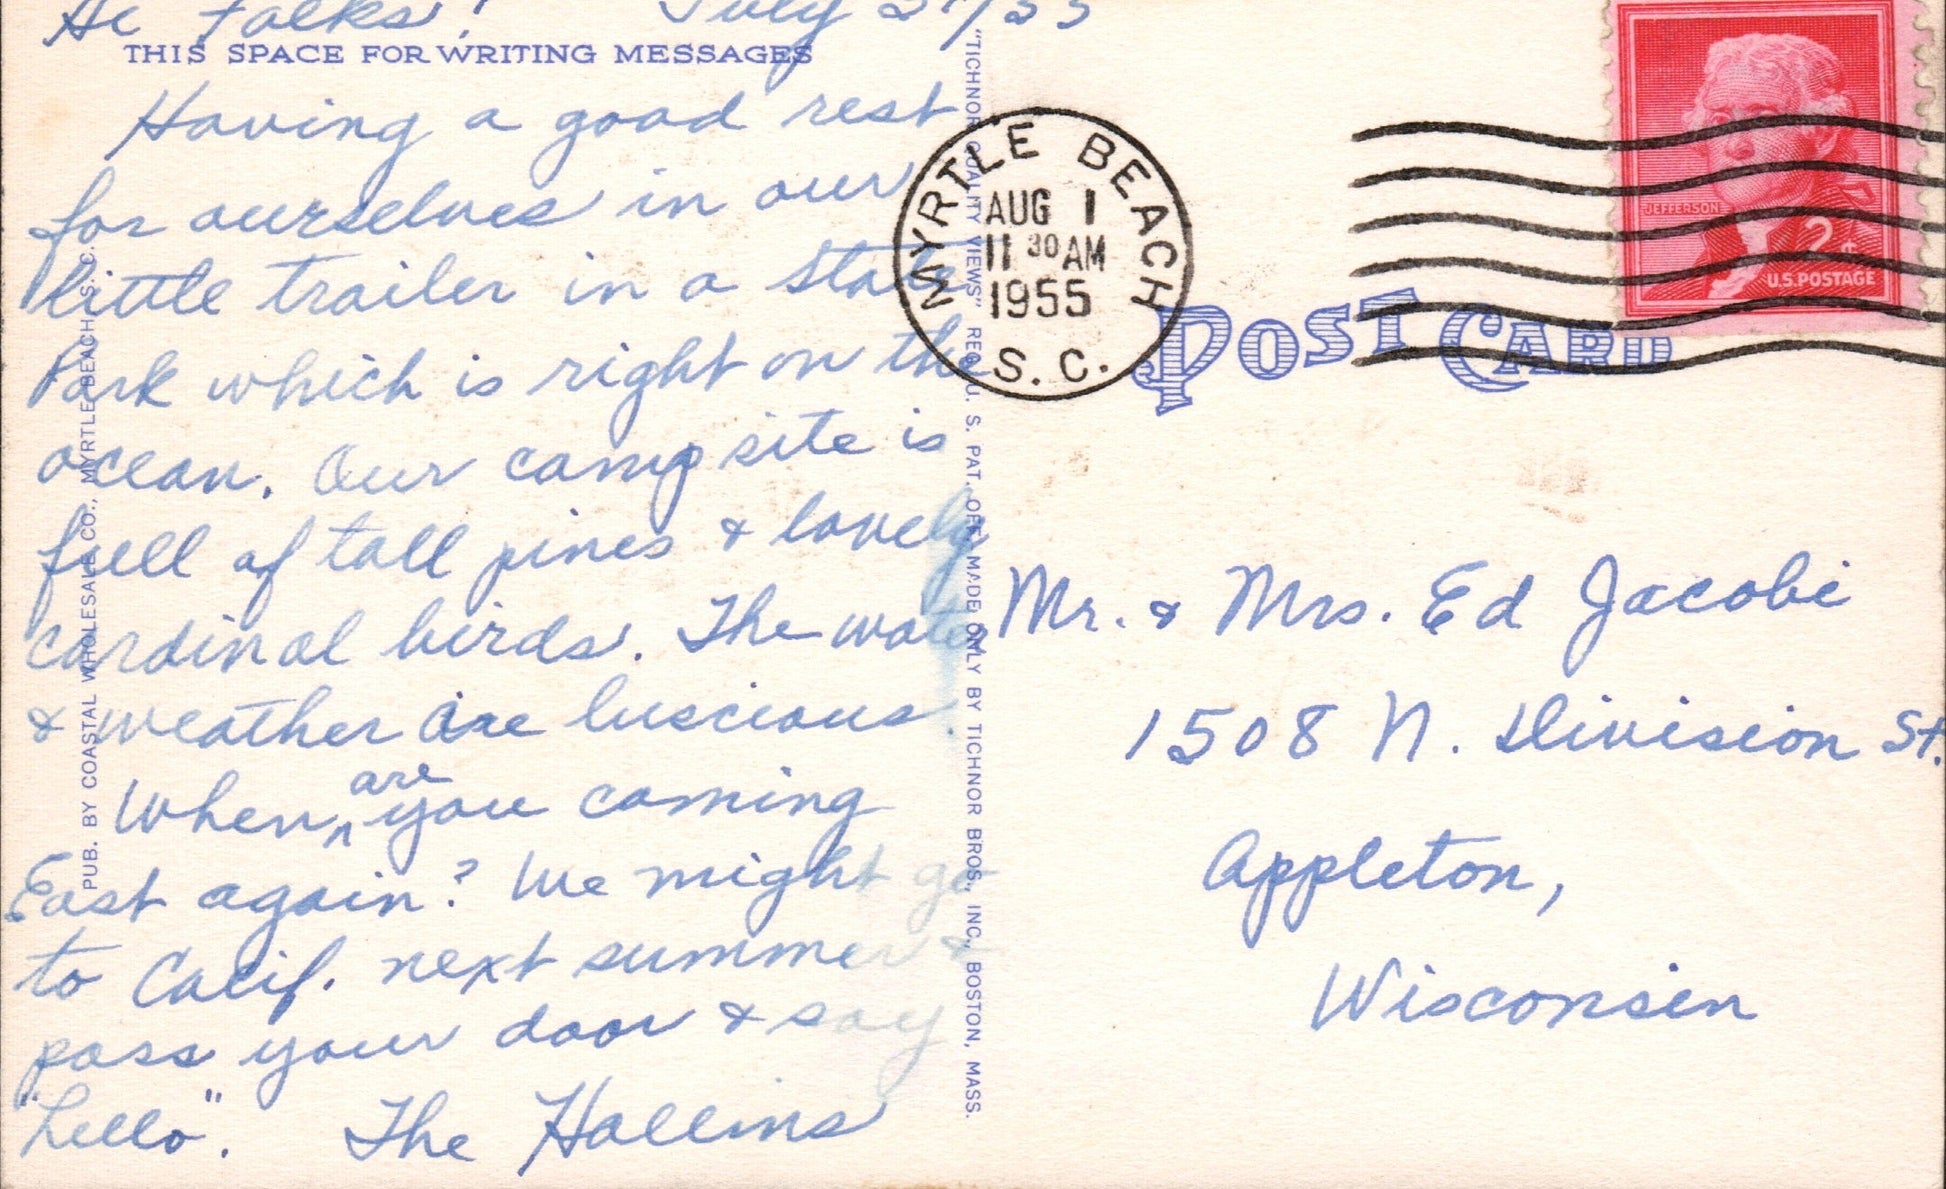 Hi Folks! July 31/55
THIS SPACE FOR WRITING MESSAGES
Having a good rest
for ourselves in our
little trailer in a State
Park which is right on the
ocean. Our camp site is
full of tall pines & lovely
cardinal birds. The water
& weather are luscious.
When ^are you coming
East again? We might go
to Calif. next summer &
pass your door & say
"hello". The Hollins
PUB. BY COASTAL WHOLESALE CO., MYRTLE BEACH, S. C.
"TICHNOR QUALITY VIEWS" REG. U. S. PAT. OFF. MADE ONLY BY TICHNOR BROS., INC., BOSTON, MASS.
MYRTLE BEACH
AUG 1
11 30 AM
1955
S. C.
JEFFERSON
2¢
U.S. POSTAGE
POST CARD
Mr. & Mrs. Ed Jacobi
1508 N. Division St.
Appleton,
Wisconsin